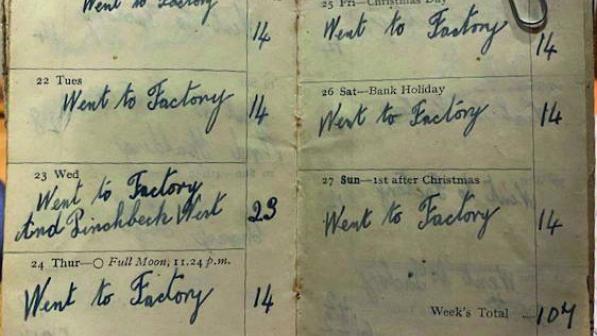 Went to Factory
14
22 Tues
Went to Factory
14
23 Wed
Went to Factory
And Pinchbeck West
23
24 Thur—○ Full Moon, 11.24 p.m.
Went to Factory
14
25 Fri—Christmas Day
Went to Factory
14
26 Sat—Bank Holiday
Went to Factory
14
27 Sun—1st after Christmas
Went to Factory
14
Week's Total ... 107